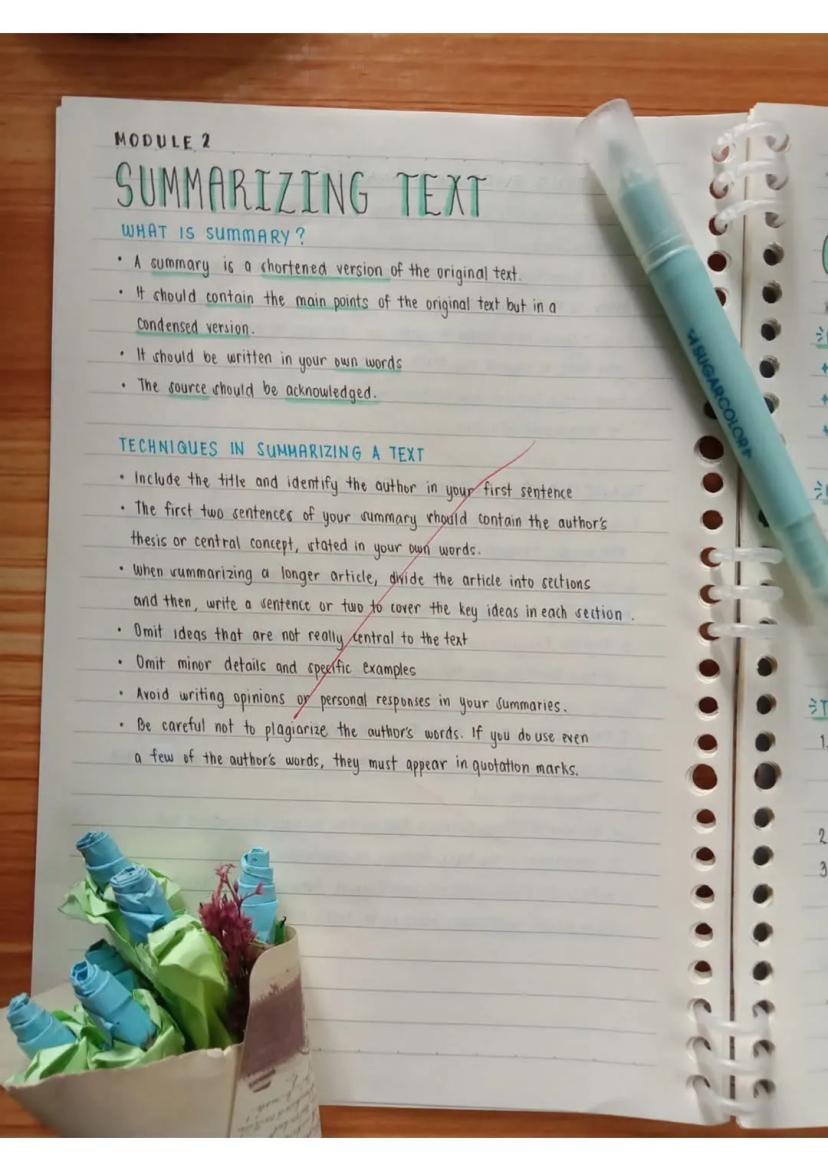 MODULE 2
SUMMARIZING TEXT
WHAT IS SUMMARY?
• A summary is a shortened version of the original text.
• It should contain the main points of the original text but in a
condensed version.
• It should be written in your own words
• The source should be acknowledged.
TECHNIQUES IN SUMMARIZING A TEXT
• Include the title and identify the author in your first sentence
• The first two sentences of your summary should contain the author's
thesis or central concept, stated in your own words.
• When summarizing a longer article, divide the article into sections
and then, write a sentence or two to cover the key ideas in each section.
• Omit ideas that are not really central to the text
• Omit minor details and specific examples
• Avoid writing opinions or personal responses in your summaries.
• Be careful not to plagiarize the author's words. If you do use even
a few of the author's words, they must appear in quotation marks.
SUGARCOLOR
1.
2
3